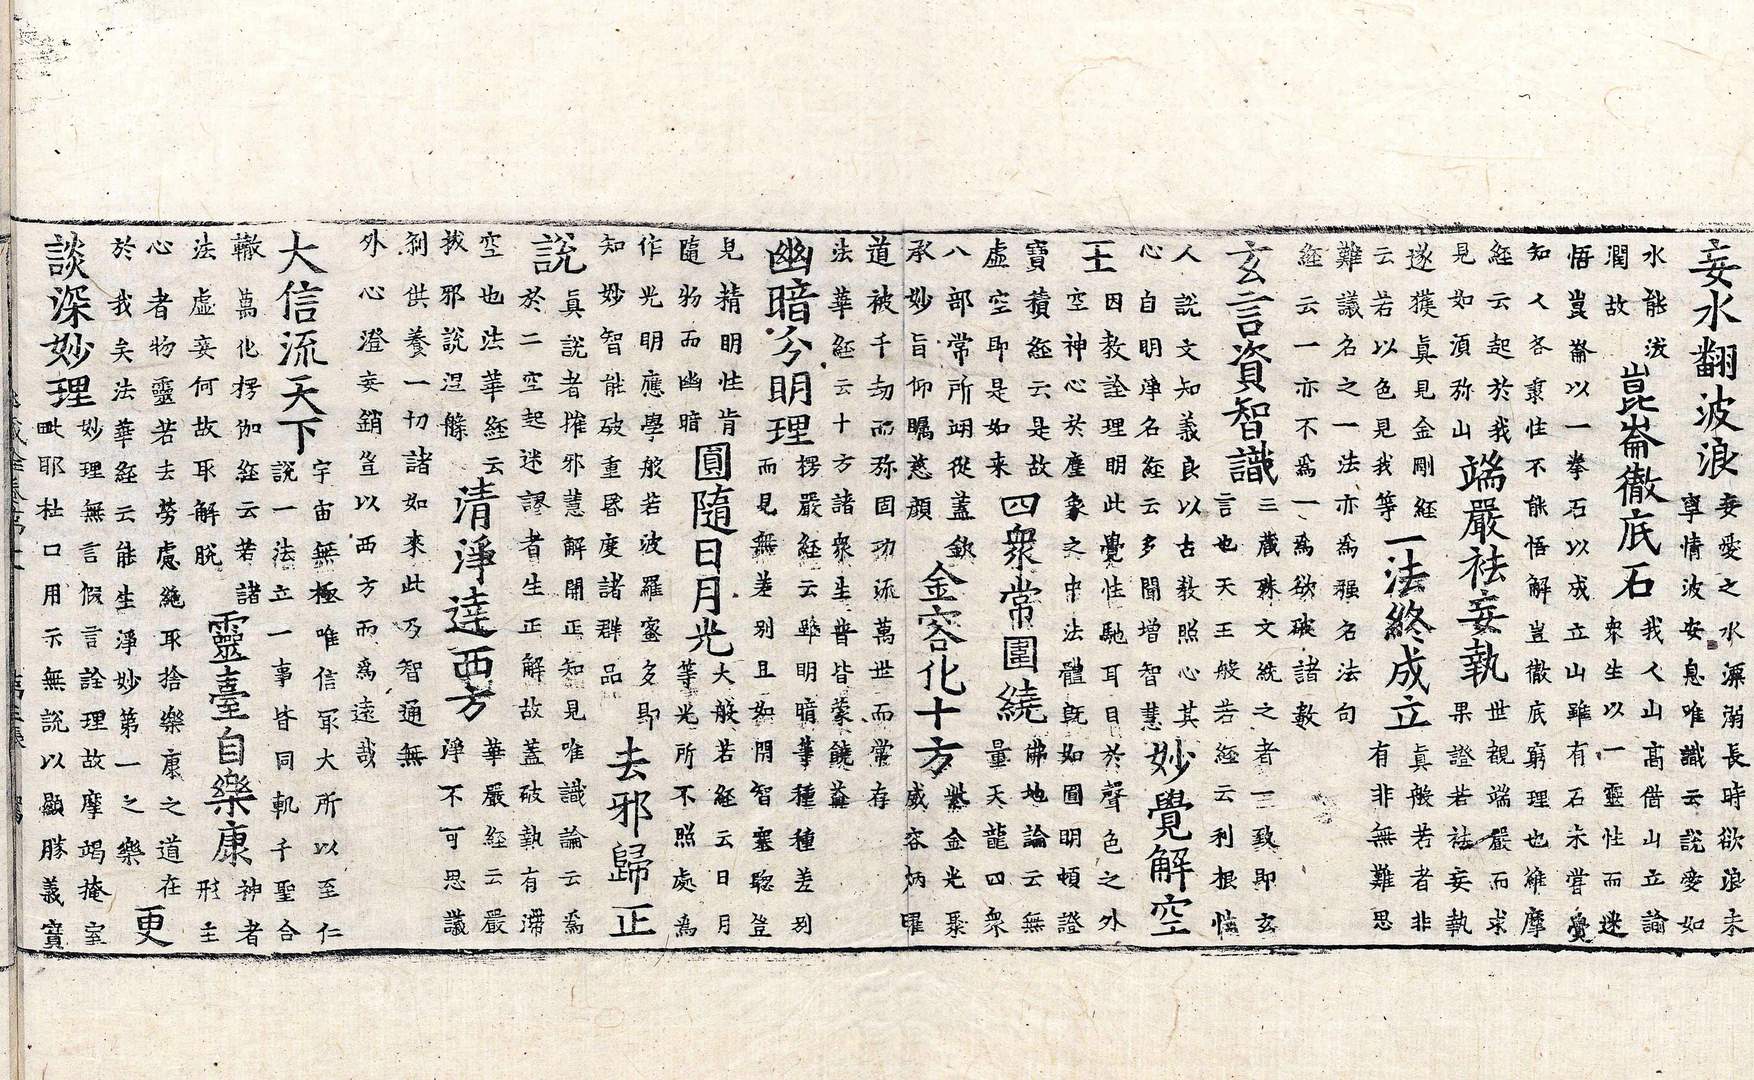 妄水翻波浪
妄愛之水漂溺長時欲浪未
寧情波安息唯識云說變如
水能潑
潤故
崑崙徹底石
我人山高借山立論
衆生以一靈性而迷
悟豈崙以一拳石以成立山雖有石未嘗覺
知人各稟性不能悟解豈徹底窮理也維摩
經云起於我
見如須弥山
端嚴袪妄執
世覩端嚴而求
果證若袪妄執
遂獲眞見金剛經
云若以色見我等
一法終成立
眞般若者非
有非無難思
難議名之一法亦爲强名法句
經云一亦不爲一爲欲破諸數
玄言資智識
三藏殊文統之者一致即玄
言也天王般若經云利根悟
人說文知義良以古教照心其
心自明淨名經云多聞增智慧
妙覺解空
王
因教詮理明此覺性馳耳目於聲色之外
空神心於塵象之中法體旣如圓明頓證
寶積經云是故
虛空即是如來
四衆常圍繞
佛地論云無
量天龍四衆
八部常所翊從盖欽
承妙旨仰瞩慈顔
金容化十方
紫金光聚
威容炳曜
道被千劫而弥固功流萬世而常存
法華經云十方諸衆生普皆蒙饒益
幽暗兮明理
楞嚴經云雖明暗等種種差别
而見無差别且如開智塞聡豈
見精明性肯
隨物而幽暗
圓隨日月光
大般若經云日月
等光所不照處爲
作光明應學般若波羅蜜多即
知妙智能破重昏度諸群品
去邪歸正
說
眞說者摧邪慧解開正知見唯識論云爲
於二空起迷謬者生正解故盖破執有滯
空也法華經云
拔邪說涅槃
清淨達西方
華嚴經云嚴
淨不可思議
刹供養一切諸如來此乃智通無
外心澄妄銷豈以西方而爲遠哉
大信流天下
宇宙無極唯信冣大所以至仁
說一法立一事皆同軌千聖合
轍萬化楞伽經云若諸
法虛妄何故耶解脫
靈臺自樂康
神者
形主
心者物靈若去勞慮絶耶捨樂康之道在
於我矣法華經云能生淨妙第一之樂
更
談深妙理
妙理無言假言詮理故摩竭掩室
毗耶杜口用示無說以顯勝義寶